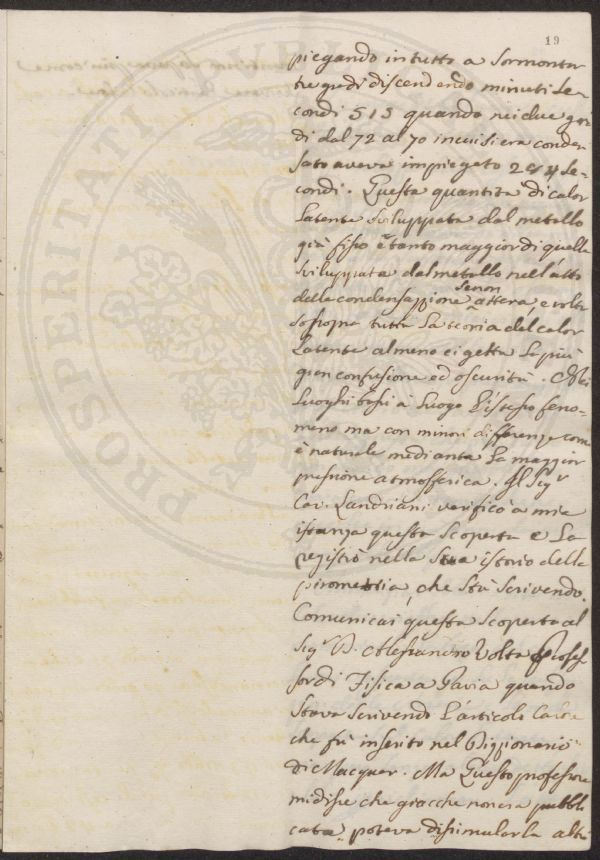 19
piegando in tutto a sormonta-
re gradi discendendo minuti se-
condi 515 quando nei due gra-
di dal 72 al 70 in cui si era conden-
sato aveva impiegato 284 se-
condi. Questa quantita di calor
latente sviluppata dal metallo
già fisso è tanto maggior di quella
sviluppata dal metallo nell'atto
della condensazzione, se non
atterra, e volta
sossopra tutta la teoria del calor
latente almeno ci getta la più
gran confusione ed oscurità.
luoghi à luogo l'istesso feno-
meno ma con minori differenze come
è naturale mediante la maggior
pressione atmosferica. Il Sigr
Cav. Landriani verificò a mia
istanza questa scoperta e la
registrò nella sua istoria della
pirometria, che stà scrivendo.
Comunicai questa scoperta al
Sigr D. Alessandro Volta Profes-
sor di Fisica a Pavia quando
stava scrivendo l'articolo Calore
che fù inserito nel Dizzionario
di Macquer. Ma questo professore
mi disse che giacche non era pubbli-
cata, poteva dissimularla altri
PROSPERITATI PUBLICAE